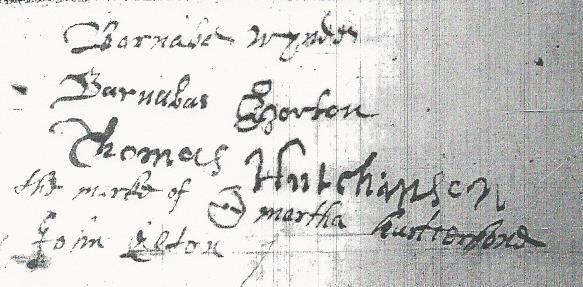 Barnabe wyndes
Barnabas Horton
Thomas Hutchinson
the marke of martha hutterford
John Elton